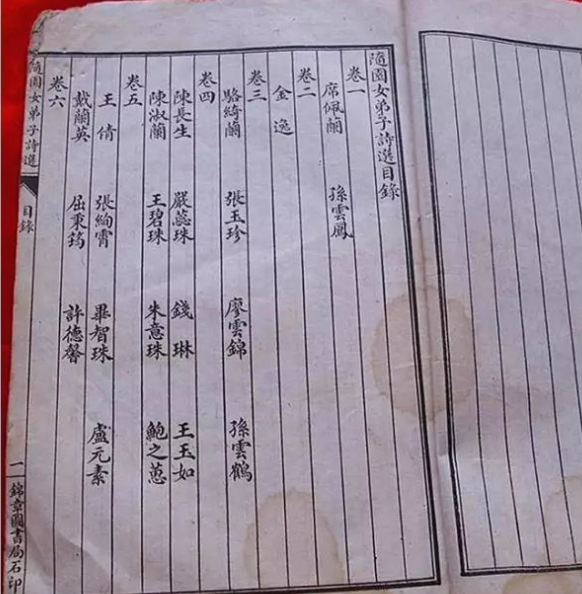 隨園女弟子詩選目錄
卷一
席佩蘭 孫雲鳳
卷二
金逸
卷三
駱綺蘭 張玉珍 廖雲錦 孫雲鶴
卷四
陳長生 嚴蕊珠 錢琳 王玉如
陳淑蘭 王碧珠 朱意珠 鮑之蕙
卷五
王倩 張絢霄 畢智珠 盧元素
戴蘭英 屈秉筠 許德馨
卷六
隨園女弟子詩選 目錄 一 錦章圖書局石印